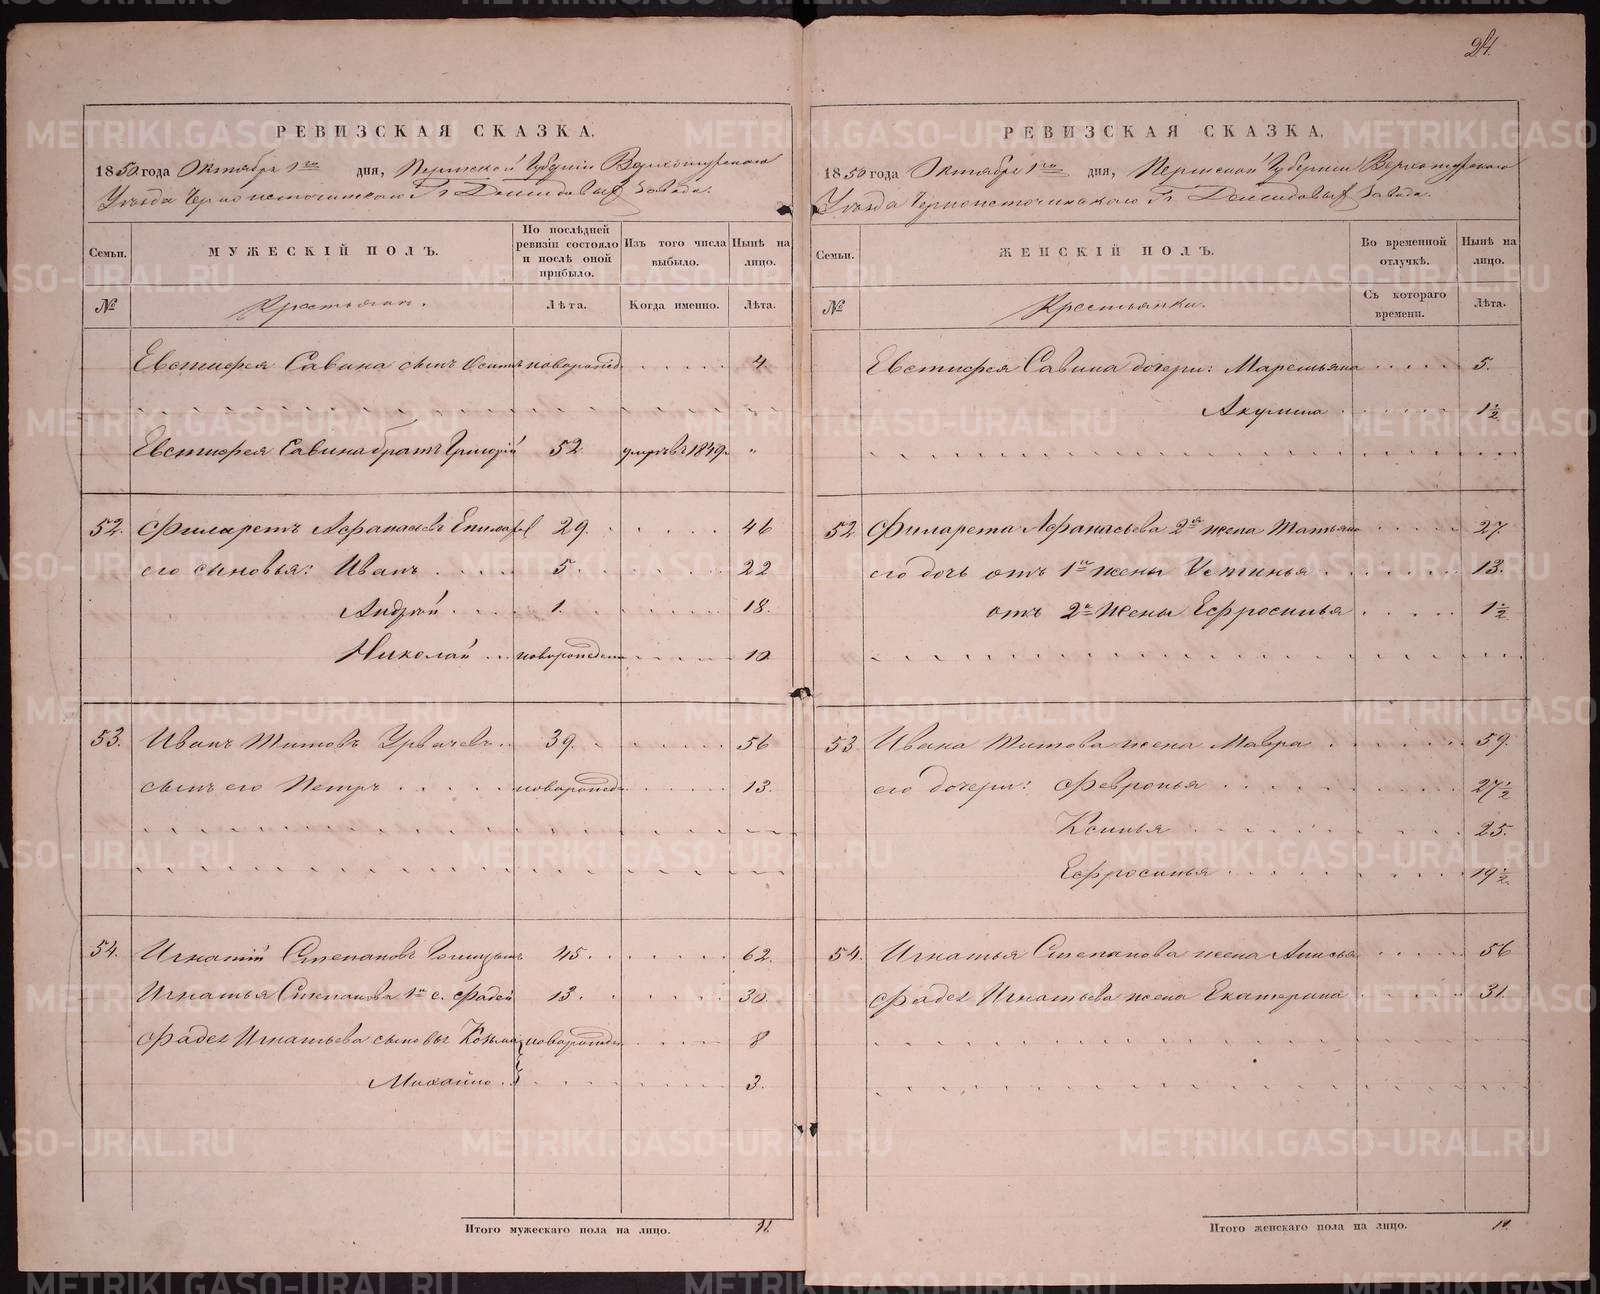 24.
РЕВИЗСКАЯ СКАЗКА.
1850 года Октября 1го дня, Пермской Губернiи Верхотурскаго
Уѣзда Черноисточинскаго Гг. Демидовыхъ Завода.
Семьи.
МУЖЕСКIЙ ПОЛЪ.
По послѣдней ревизiи состояло и послѣ оной прибыло.
Изъ того числа выбыло.
Нынѣ на лицо.
№
Крестьяне.
Лѣта.
Когда именно.
Лѣта.
Евстифея Савина сынъ Осипъ новорожд 4.
Евстифея Савина братъ Григорiй 52 умръ въ 1849. "
52. Филаретъ Афанасьевъ 29. 46
его сыновья: Иванъ 5. 22
Андрей 1. 18.
Николай новорожден 10
53. Иванъ Титовъ Урвачевъ 39. 56
сынъ его Петръ новорожд 13.
54. Игнатiй Степановъ 45. 62.
Игнатья Степанова 1й с. Фадей 13. 30.
Фадея Игнатьева сыновья Козьма новорожд 8
Михайло 3.
Итого мужескаго пола на лицо. 11.
РЕВИЗСКАЯ СКАЗКА.
1850 года Октября 1го дня, Пермской Губернiи Верхотурскаго
Уѣзда Черноисточинскаго Гг. Демидовыхъ Завода.
Семьи.
ЖЕНСКIЙ ПОЛЪ.
Во временной отлучкѣ.
Нынѣ на лицо.
№
Крестьянки.
Съ котораго времени.
Лѣта.
Евстифея Савина дочери: Маремьяна 5.
Акулина 1½
52 Филарета Афанасьева 2я жена Татьяна 27.
его дочь отъ 1й жены Устинья 13.
отъ 2й жены Ефросинья 1½
53 Ивана Титова жена Мавра 59.
его дочери: Февронья 27½
Ксинья 25.
Ефросинья 19½
54. Игнатья Степанова жена Анисья 56
Фадея Игнатьева жена Екатерина 31.
Итого женскаго пола на лицо. 11.
METRIKI.GASO-URAL.RU